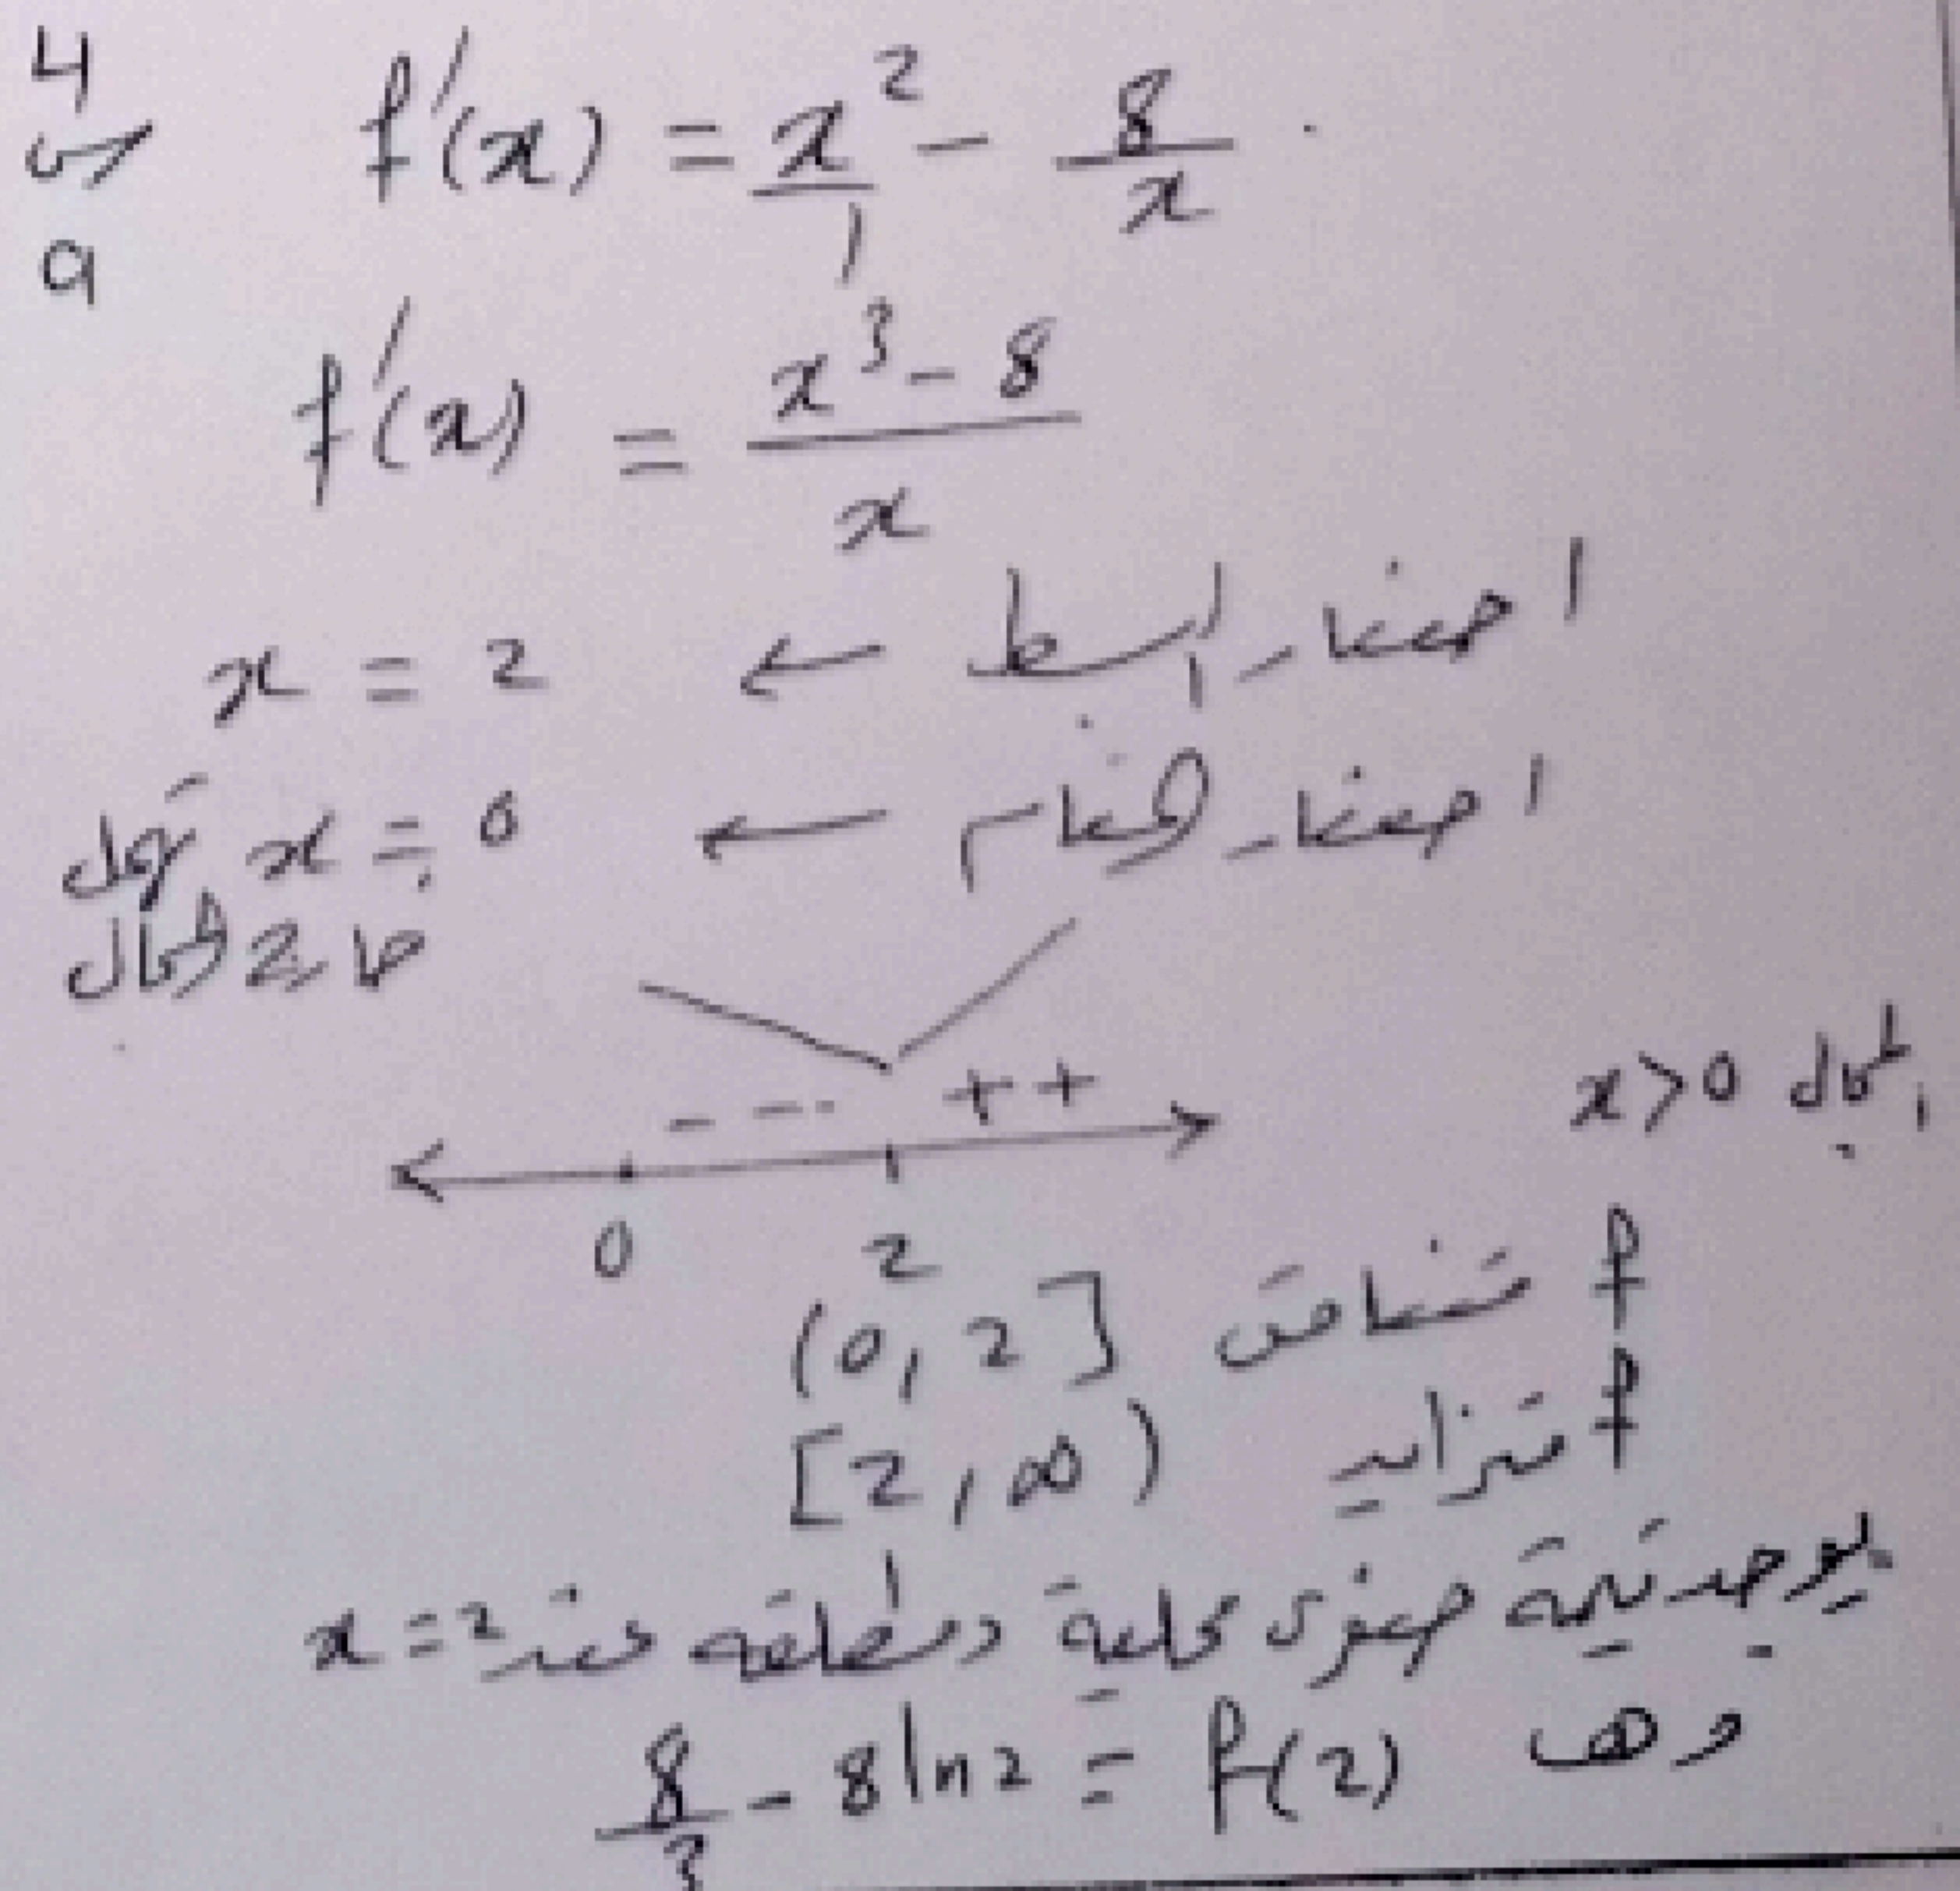 4
س
a
f'(x) = x²/1 - 8/x
f'(x) = (x³ - 8)/x
اصفار البسط ← x = 2
اصفار المقام ← x = 0 تهمل
خارج المجال
-- -- ++
المجال x > 0
0 2
f متناقص (0, 2]
f متزايد [2, ∞)
يوجد قيمة صغرى محلية ومطلقة عند x = 2
وهي f(2) = 8/3 - 8 ln 2